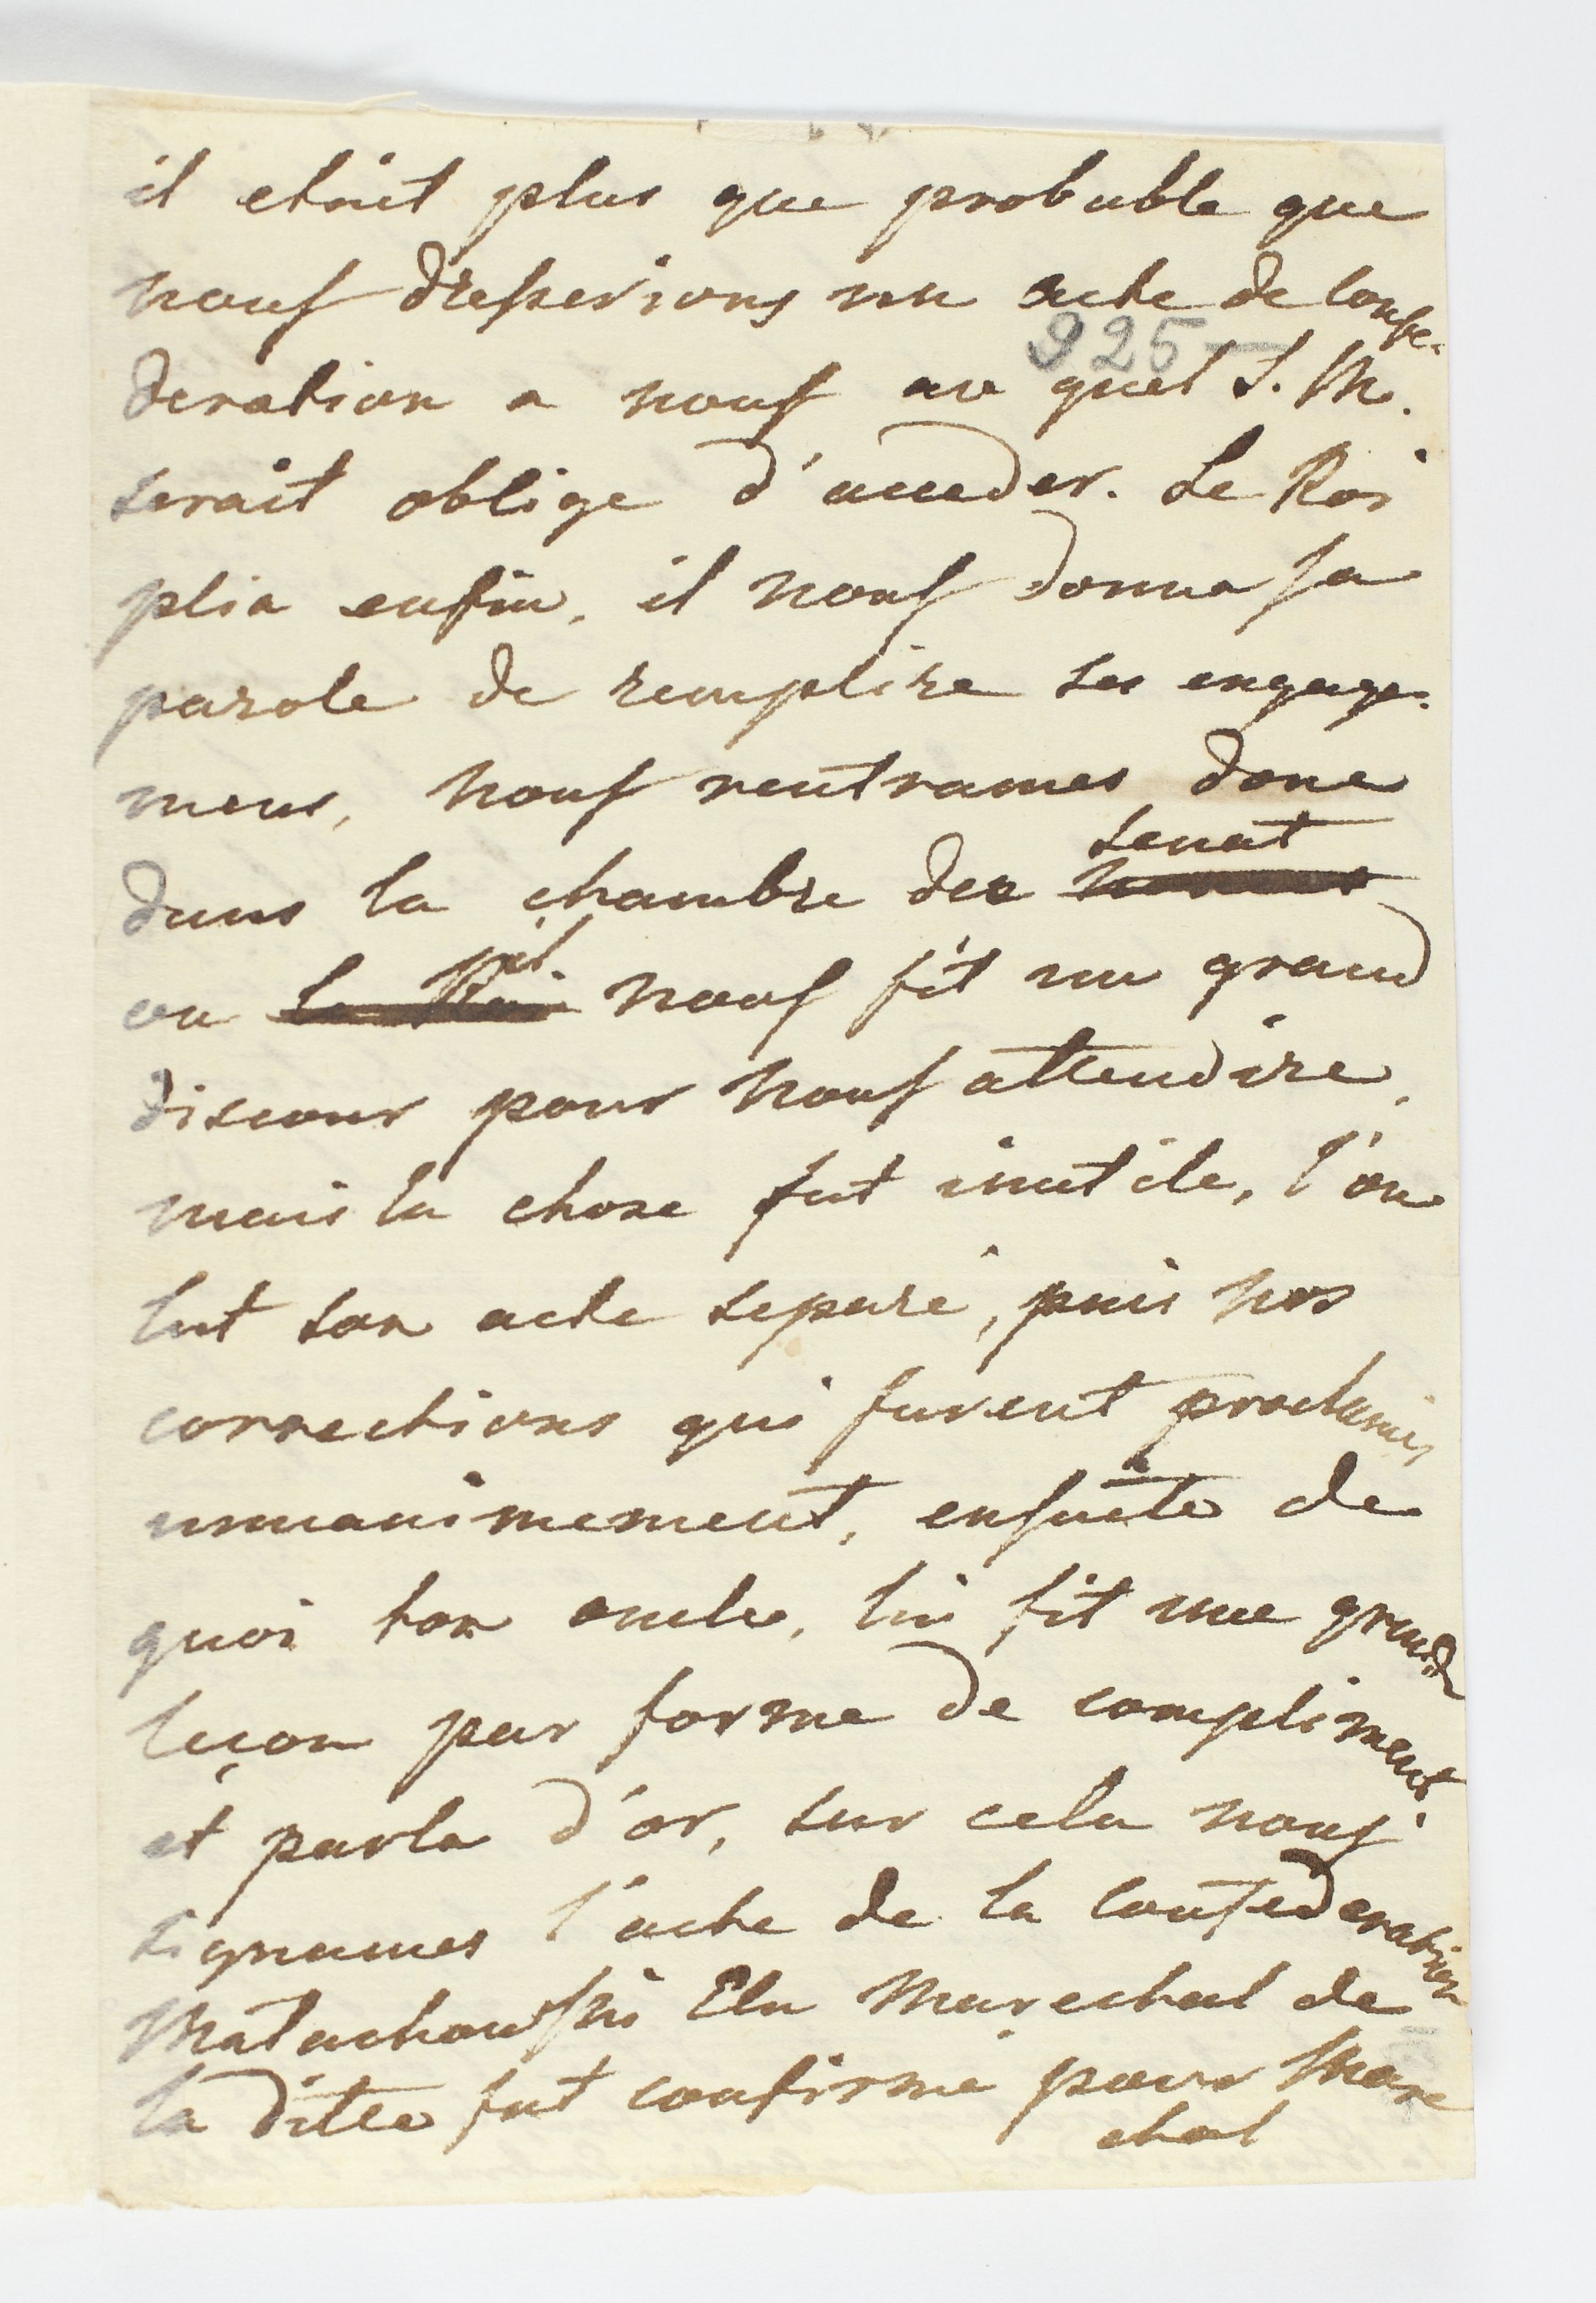 il etoit plus que probable que
nous dresserions un acte de confe-
925
deration a nous au quel S. M.
serait oblige d'acceder. Le Roi
plia enfin, il nous donna sa
parole de remplire ses engage-
mens, nous rentrames donc
senat
dans la chambre des
il
ou le Roi nous fit un grand
discour pour nous attendire,
mais la chose fut inutile, l'on
lut son acte separé, puis nos
corrections qui furent proclamés
unnanimement, ensuite de
quoi ton oncle, lui fit une grande
leçon par forme de compliment.
et parla d'or, sur cela nous
signames l'acte de la confederation
Małachowski Elu Marechal de
la ditte fut confirmé pour Mare
chal